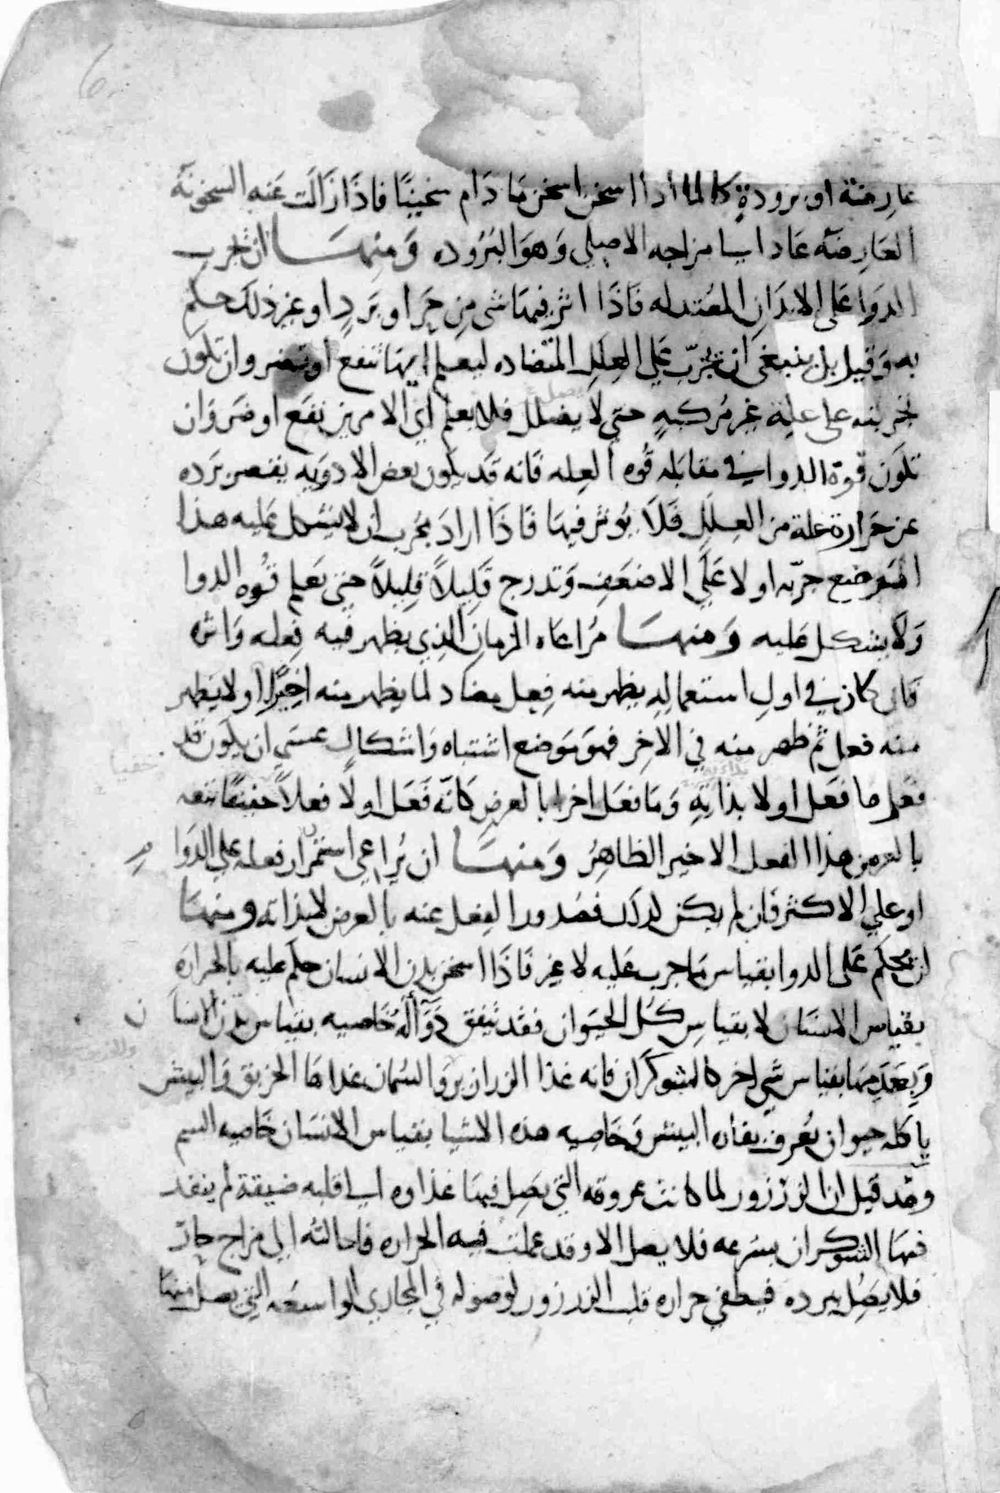 6
عارضة او برودةٍ كالما اذا اسخن اسخن مَا دَام سخينًا فاذَا زَالَت عَنه السخونة
العَارضَه عَاد الى مزاجه الاصلى وَهوَ البُرُوده وَمنهَا ان تجرب
الدوَا عَلى الابدَان المعُتدله فَاذَا اثر فيهَا شى مِن حَر او بَردٍ او غير ذلك حكم
به وَقيل بل ينبغى ان يجَرّب عَلى العِلَل المتضاده ليعلم ايهَا تنفع او تضر وان تكون
تجربته على علة غير مُركبهٍ حتى لا يضلل فلا يعلم اى الامرين نفَع او ضَر وَان
تكوَن قوة الدوا فى مقابَله قُوه العِله فَانه قَد يكون بعض الادوَيه يقصر بَرده
عن حَرارة علة من العِلَل فَلاَ يُوثر فيهَا فَاذَا ارادَ يجُرب ان لا يشكل عَليه هذا
الموَضع جرّبه اولا عَلَى الاضعَف وَتدرج قَليلاً قليلاً حتى يَعلم قُوه الدوا
وَلاَ يشكل عَليه وَمنهَا مُراعَاه الزمان الذي يظهر فيه فعِله وَاثره
فان كان فى اول استعمالهِ يظهر منه فِعِل مضاد لما يظهر منه اخيرًا او لا يظهر
منه فعل ثم ظهر منه في الاخِر فهوَ مَوضع اشتباه وَاشكال عسَى ان يكون قد
فعَل ما فعَل اولا بذاتهِ وَمَا فعَل اخرا بالعرض كانّه فَعَل اولا فعلاً خفيًا تبعه
بالعرض هذا الفعل الاخير الظاهِرُ وَمنهَا ان يُراعى استمرار فعله على الدوَا
او على الاكثر فَان لم يكن لذلك فصُدور الفِعل عنه بالعرض لا بذاته ومنهَا
ان يحكم عَلى الدوا بقياس مَا جرب عَليه لا غير فَاذَا اسخن بدن الانسان حكم عليه بالحرارَه
بقياس الانسَان لا بقياس كُل الحيوَان فقد يتفق دوَآ لَهُ خَاصيه بقياس بَدن الانسَان
وَبعَدمهَا بقياس شى اخر كالشوكرَان فانه غذا الزرازير وَالسُمان غذاهَا الخربق وَالبيش
ياكله حيوان يُعرف بفاره البيش وَخاصيه هذه الاشيا بقياس الانسَان خَاصيه السم
وقد قيل ان الزرزور لما كانت عروقه التى يَصِل فيهَا غذاوه الى قلبه ضيقة لم ينفد
فيهَا الشوكران بسَرعه فلا يصل الا وقد عملت فيه الحراره فاحالته الى مزاج حار
فلا يصَل ببرده فيطفى حراره قلب الزرزور لوصوله فى المجارى الواسعَه التى يصل منهَا